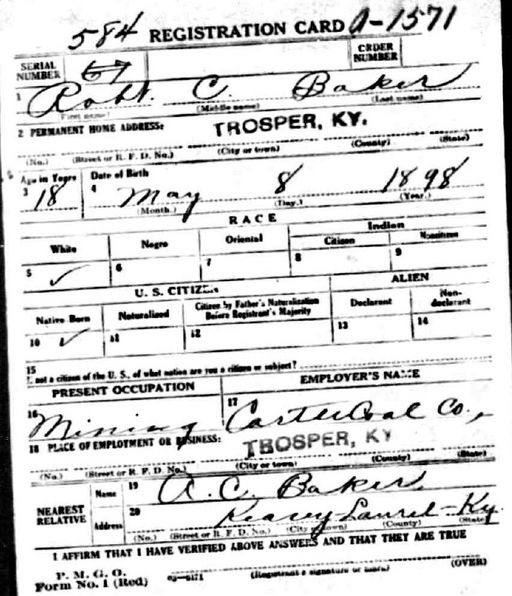 584 REGISTRATION CARD A-1571
SERIAL NUMBER 67 ORDER NUMBER
1 Robt. C Baker
(First name) (Middle name) (Last name)
2 PERMANENT HOME ADDRESS:
TROSPER, KY.
(No.) (Street or R. F. D. No.) (City or town) (County) (State)
Age in Years Date of Birth
3 18 4 May 8 1898
(Month.) (Day.) (Year.)
RACE
White Negro Oriental Indian
Citizen Noncitizen
5 ✓ 6 7 8 9
U. S. CITIZEN ALIEN
Native Born Naturalized Citizen by Father's Naturalization Before Registrant's Majority Declarant Non-declarant
10 ✓ 11 12 13 14
15
not a citizen of the U. S., of what nation are you a citizen or subject?
PRESENT OCCUPATION EMPLOYER'S NAME
16 Mining 17 Carter Coal Co.,
18 PLACE OF EMPLOYMENT OR BUSINESS:
TROSPER, KY
(No.) (Street or R. F. D. No.) (City or town) (County) (State)
NEAREST RELATIVE Name 19 A. C. Baker
Address 20 Laurel-Ky.
(No.) (Street or R. F. D. No.) (City or town) (County) (State)
I AFFIRM THAT I HAVE VERIFIED ABOVE ANSWERS AND THAT THEY ARE TRUE
P. M. G. O.
Form No. 1 (Red) 03—6171 (Registrant's signature or mark) (OVER)